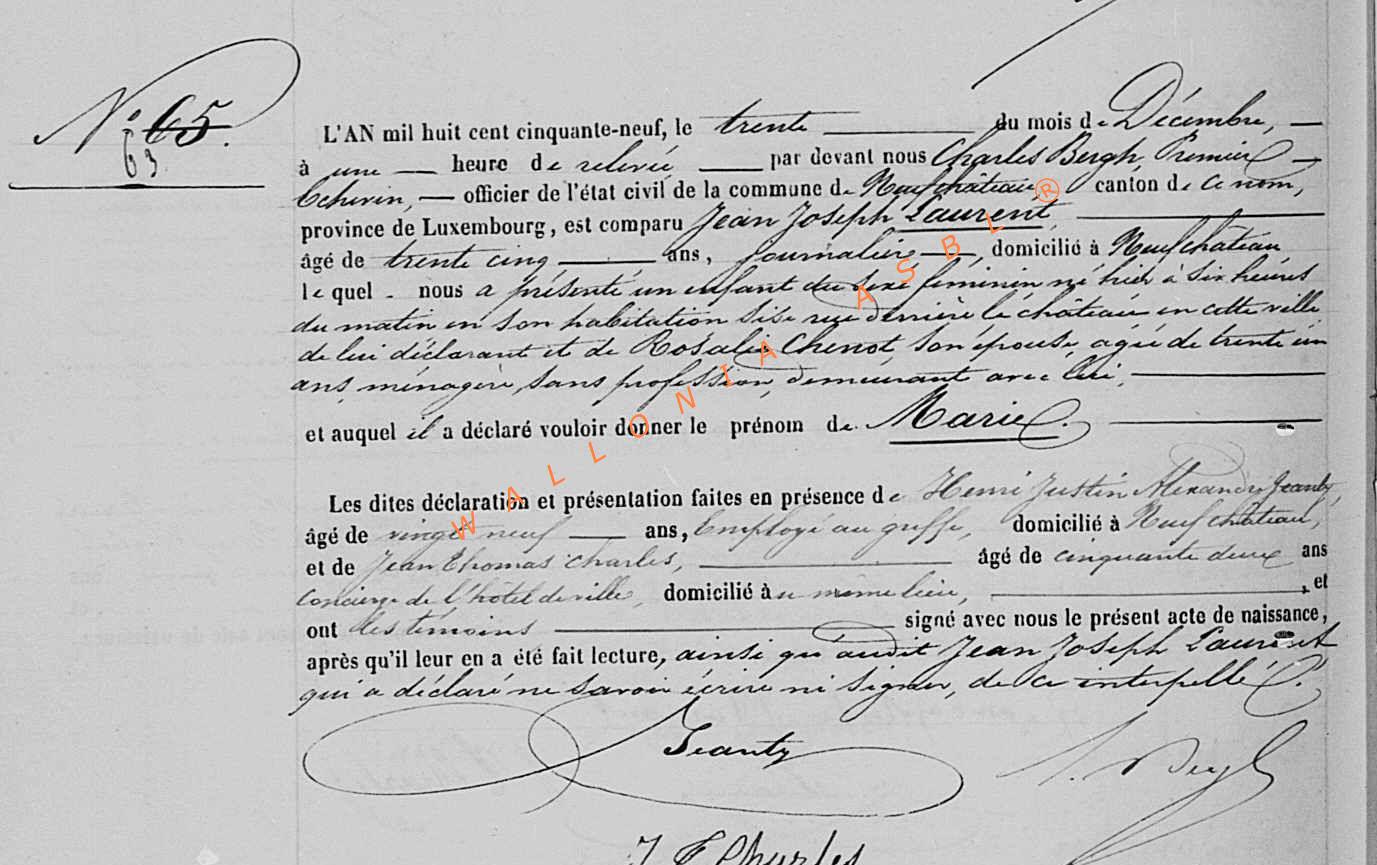 N° 65.
63
L'AN mil huit cent cinquante-neuf, le trente du mois de Décembre,
à une heure de relevée par devant nous Charles Bergh Premier
Echevin, officier de l'état civil de la commune de Neufchâteau, canton de ce nom,
province de Luxembourg, est comparu Jean Joseph Laurent,
âgé de trente cinq ans, journalier, domicilié à Neufchâteau
lequel nous a présenté un enfant du sexe féminin né hier à six heures
du matin en son habitation sise rue derrière le château en cette ville
de lui déclarant et de Rosalie Chenot, son épouse, agée de trente un
ans, ménagère, sans profession, demeurant avec lui,
et auquel il a déclaré vouloir donner le prénom de Marie.
Les dites déclaration et présentation faites en présence de Henri Justin Alexandre Jeanty,
âgé de vingt neuf ans, Employé au greffe, domicilié à Neufchâteau,
et de Jean Thomas Charles, âgé de cinquante deux ans
Concierge de l'hôtel de ville, domicilié au même lieu, et
ont les témoins signé avec nous le présent acte de naissance,
après qu'il leur en a été fait lecture, ainsi qu'audit Jean Joseph Laurent
qui a déclaré ne savoir écrire ni signer, de ce interpellé.
Jeanty
Bergh
J T Charles
WALLONIA ASBL ®